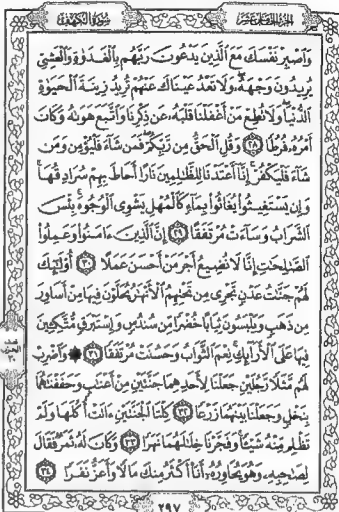 الجزء الخامس عشر
سورة الكهف
وَٱصْبِرْ نَفْسَكَ مَعَ ٱلَّذِينَ يَدْعُونَ رَبَّهُم بِٱلْغَدَوٰةِ وَٱلْعَشِيِّ
يُرِيدُونَ وَجْهَهُۥ ۖ وَلَا تَعْدُ عَيْنَاكَ عَنْهُمْ تُرِيدُ زِينَةَ ٱلْحَيَوٰةِ
ٱلدُّنْيَا ۖ وَلَا تُطِعْ مَنْ أَغْفَلْنَا قَلْبَهُۥ عَن ذِكْرِنَا وَٱتَّبَعَ هَوَىٰهُ وَكَانَ
أَمْرُهُۥ فُرُطًا ٢٨ وَقُلِ ٱلْحَقُّ مِن رَّبِّكُمْ ۖ فَمَن شَآءَ فَلْيُؤْمِن وَمَن
شَآءَ فَلْيَكْفُرْ ۚ إِنَّآ أَعْتَدْنَا لِلظَّـٰلِمِينَ نَارًا أَحَاطَ بِهِمْ سُرَادِقُهَا ۚ
وَإِن يَسْتَغِيثُوا۟ يُغَاثُوا۟ بِمَآءٍ كَٱلْمُهْلِ يَشْوِى ٱلْوُجُوهَ ۚ بِئْسَ
ٱلشَّرَابُ وَسَآءَتْ مُرْتَفَقًا ٢٩ إِنَّ ٱلَّذِينَ ءَامَنُوا۟ وَعَمِلُوا۟
ٱلصَّـٰلِحَـٰتِ إِنَّا لَا نُضِيعُ أَجْرَ مَنْ أَحْسَنَ عَمَلًا ٣٠ أُو۟لَـٰٓئِكَ
لَهُمْ جَنَّـٰتُ عَدْنٍ تَجْرِى مِن تَحْتِهِمُ ٱلْأَنْهَـٰرُ يُحَلَّوْنَ فِيهَا مِنْ أَسَاوِرَ
مِن ذَهَبٍ وَيَلْبَسُونَ ثِيَابًا خُضْرًا مِّن سُندُسٍ وَإِسْتَبْرَقٍ مُّتَّكِـِٔينَ
فِيهَا عَلَى ٱلْأَرَآئِكِ ۚ نِعْمَ ٱلثَّوَابُ وَحَسُنَتْ مُرْتَفَقًا ٣١ ۞ وَٱضْرِبْ
لَهُم مَّثَلًا رَّجُلَيْنِ جَعَلْنَا لِأَحَدِهِمَا جَنَّتَيْنِ مِنْ أَعْنَـٰبٍ وَحَفَفْنَـٰهُمَا
بِنَخْلٍ وَجَعَلْنَا بَيْنَهُمَا زَرْعًا ٣٢ كِلْتَا ٱلْجَنَّتَيْنِ ءَاتَتْ أُكُلَهَا وَلَمْ
تَظْلِم مِّنْهُ شَيْـًٔا ۚ وَفَجَّرْنَا خِلَـٰلَهُمَا نَهَرًا ٣٣ وَكَانَ لَهُۥ ثَمَرٌ فَقَالَ
لِصَـٰحِبِهِۦ وَهُوَ يُحَاوِرُهُۥٓ أَنَا۠ أَكْثَرُ مِنكَ مَالًا وَأَعَزُّ نَفَرًا ٣٤
٢٩٧